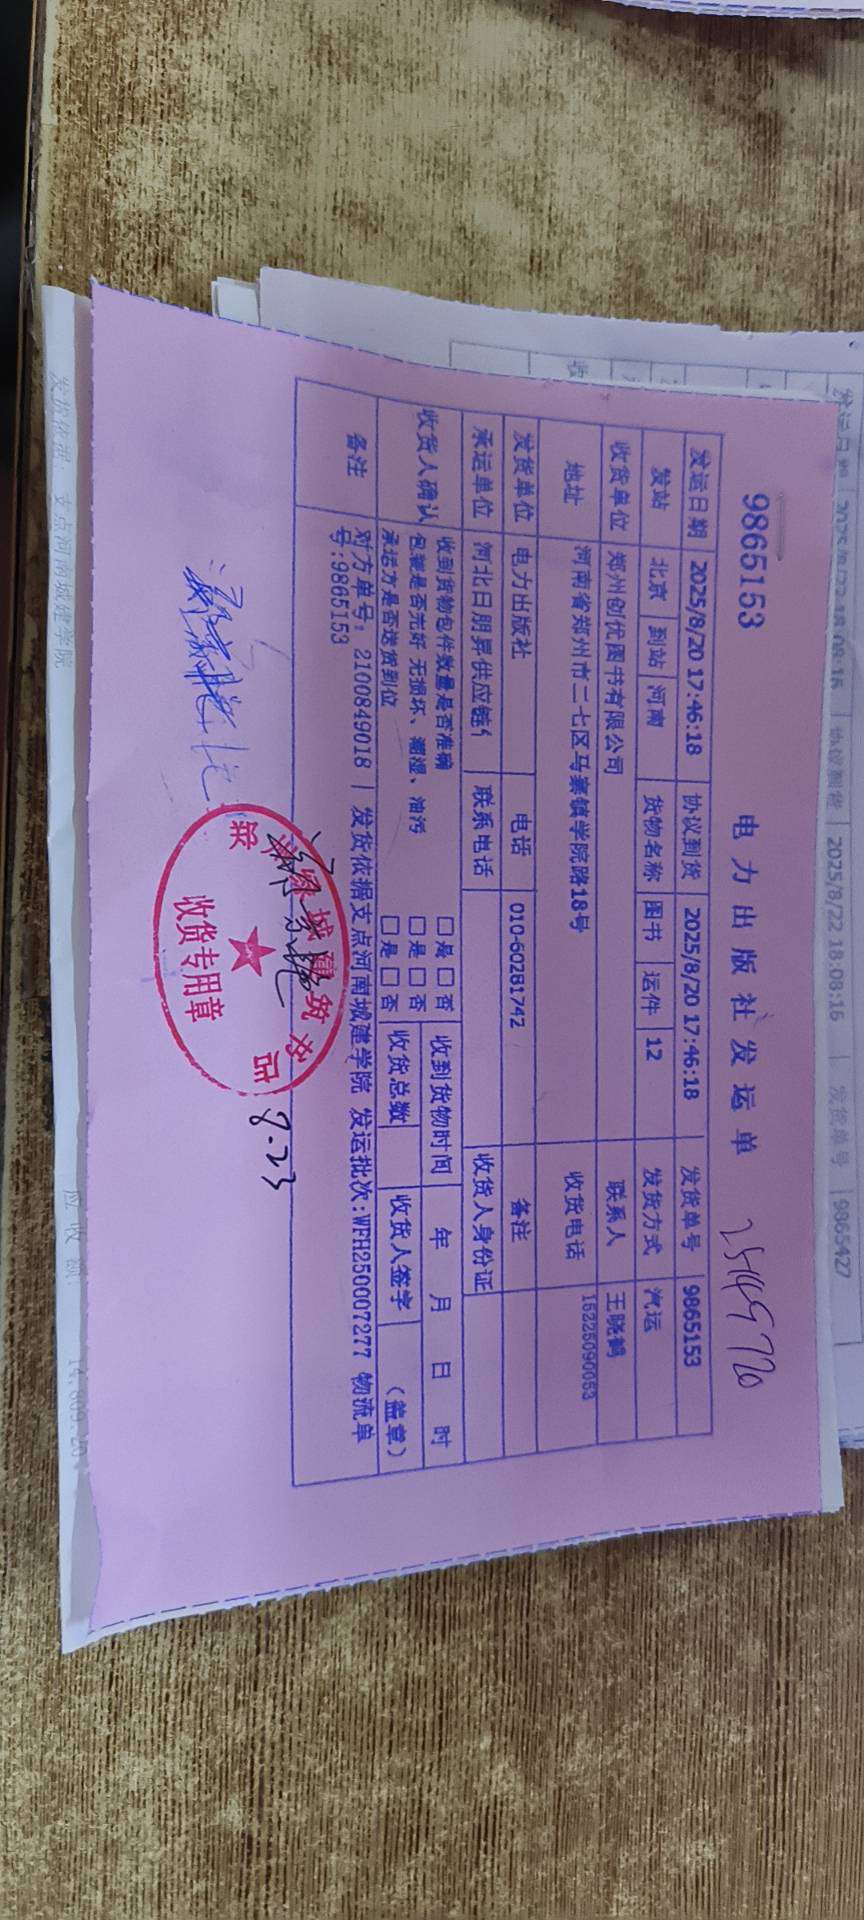 9865153
电力出版社发运单
发运日期 2025/8/20 17:46:18 协议到货 2025/8/20 17:46:18 发货单号 9865153
发站 北京 到站 河南 货物名称 图书 运件 12 发货方式 汽运
收货单位 郑州创优图书有限公司 联系人 王晓鹤
地址 河南省郑州市二七区马寨镇学院路18号 收货电话 15225090053
发货单位 电力出版社 电话 010-60281742 备注
承运单位 河北日朋昇供应链 联系电话 收货人身份证
收货人确认 收到货物包件数量是否准确 □是 □否 收到货物时间 年 月 日 时
包装是否完好 无损坏、潮湿、油污 □是 □否
承运方是否送货到位 □是 □否 收货总数 收货人签字 (盖章)
备注 对方单号: 2100849018 | 发货依据支点河南城建学院 发运批次:WFH250007277 物流单
号:9865153
收货专用章
8.23
发货依据: 支点河南城建学院 应收额:
2025/8/22 18:08:16 协议到货 2025/8/22 18:08:16 发货单号 9865427